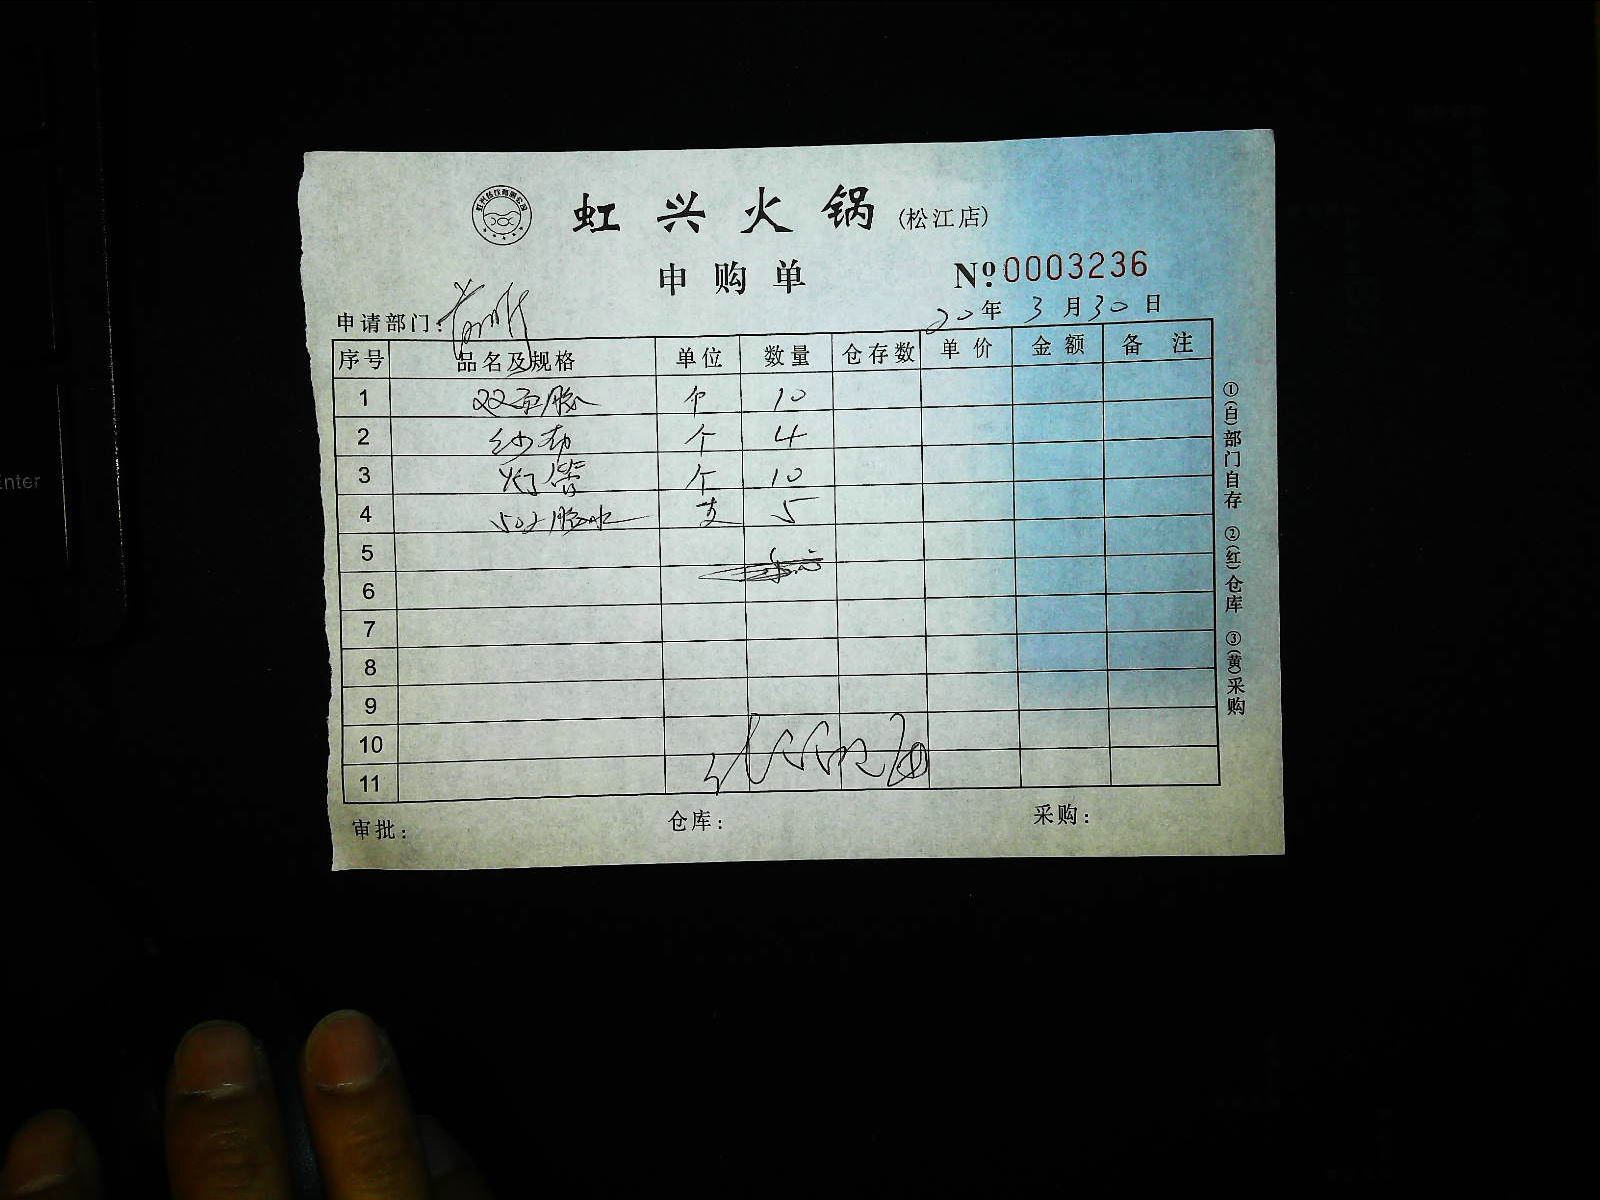 虹兴火锅(松江店)
申购单 Nº 0003236
申请部门:
20年3月30日
序号 品名及规格 单位 数量 仓存数 单价 金额 备注
1 双面胶 个 10
2 纱布 个 4
3 灯管 个 10
4 502胶水 支 5
5
6
7
8
9
10
11
审批: 仓库: 采购:
①(白)部门自存 ②(红)仓库 ③(黄)采购
Enter